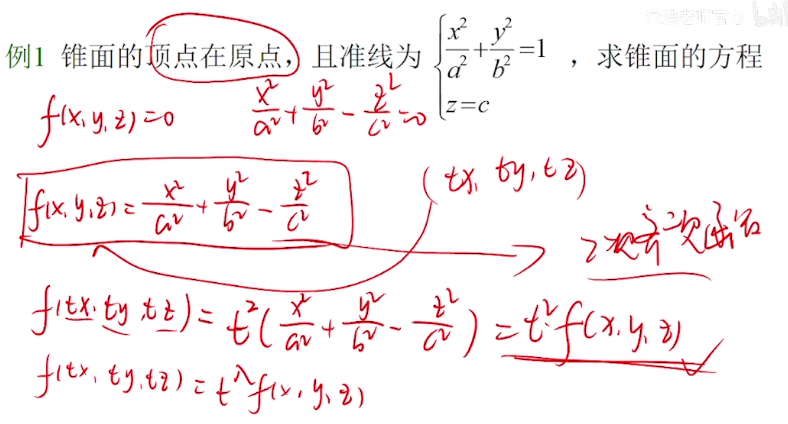 例1 锥面的顶点在原点，且准线为 { x²/a² + y²/b² = 1 ，求锥面的方程
z=c
f(x,y,z)=0 x²/a² + y²/b² - z²/c² = 0
f(x,y,z) = x²/a² + y²/b² - z²/c² (tx, ty, tz)
2次齐次函数
f(tx, ty, tz) = t²(x²/a² + y²/b² - z²/c²) = t²f(x,y,z)
f(tx, ty, tz) = t^λ f(x,y,z)